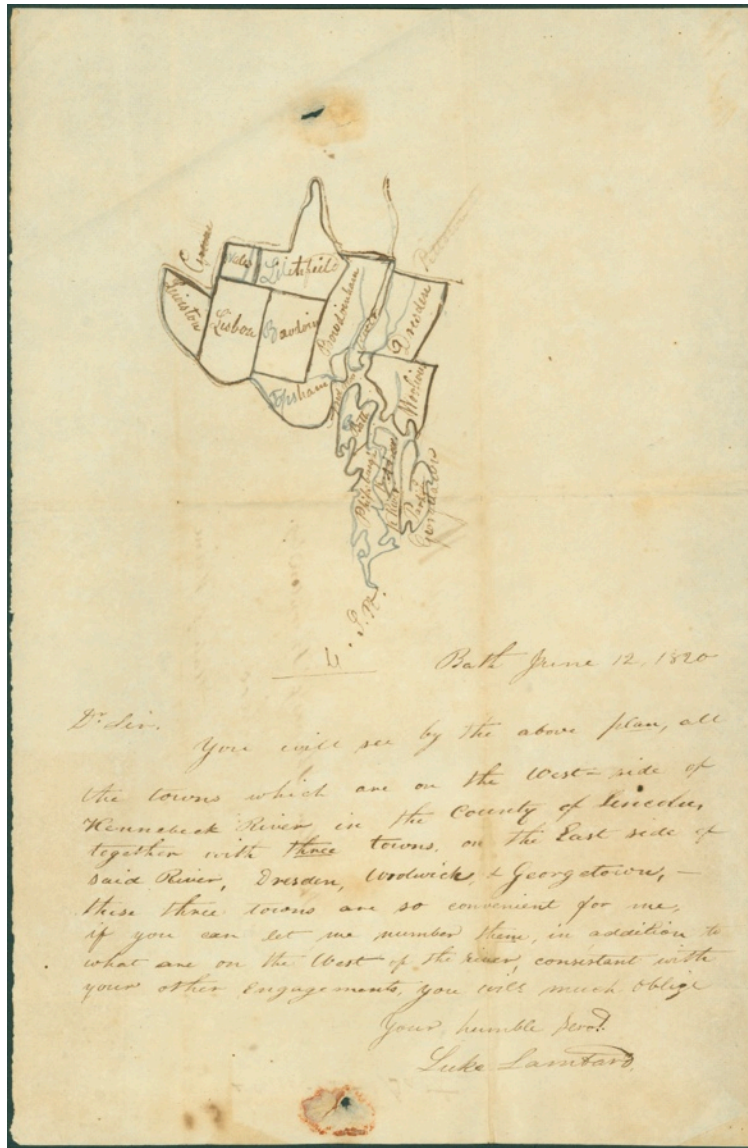 Wales
Litchfield
Lewiston
Lisbon
Bowdoin
Bowdoinham
Dresden
Topsham
Woolwich
Bath
Phipsburgh
Part of
Georgetown
Bath June 12, 1820
Dr Sir.
You will see by the above plan, all
the towns which are on the West side of
Kennebeck River in the County of Lincoln,
together with three towns, on the East side of
said River, Dresden, Woolwich, & Georgetown, —
these three towns are so convenient for me,
if you can let me number them, in addition to
what are on the West of the river, consistant with
your other Engagements, you will much oblige
Your humble Servt.
Luke Lambard.